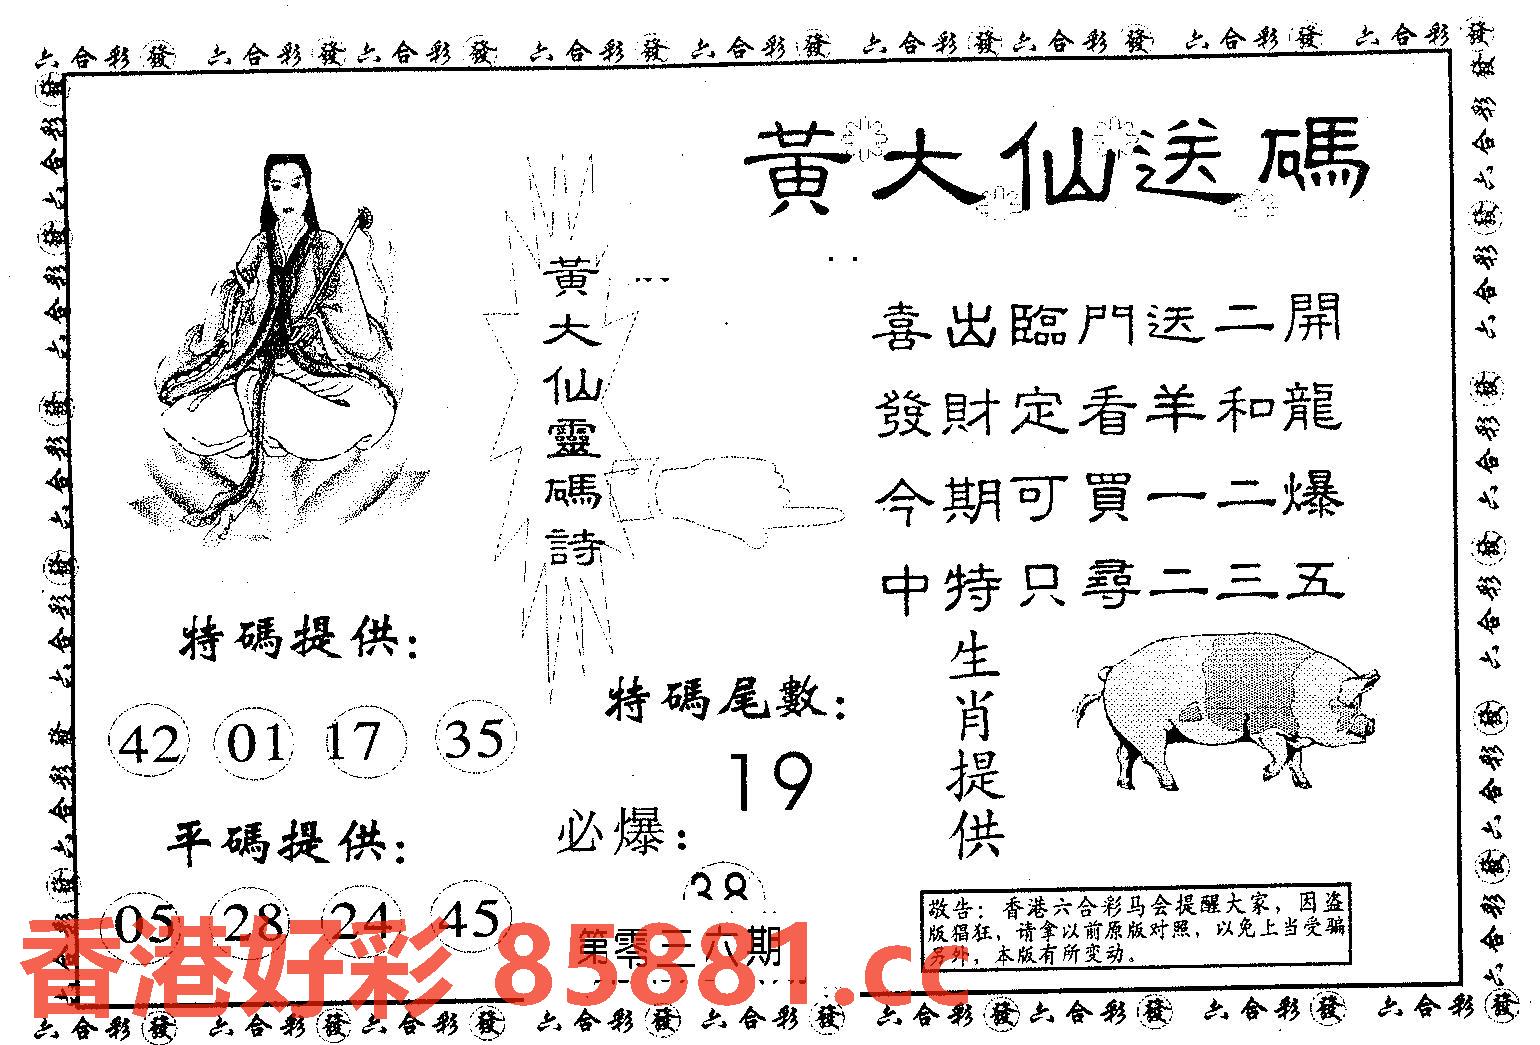 六合彩發 六合彩發 六合彩發 六合彩發 六合彩發 六合彩發 六合彩發 六合彩發 六合彩發
黃大仙送碼
黃大仙靈碼詩
喜出臨門送二開
發財定看羊和龍
今期可買一二爆
中特只尋二三五
特碼提供：
42 01 17 35
平碼提供：
05 28 24 45
特碼尾數：
19
必爆：
38
第零三六期
生肖提供
敬告：香港六合彩马会提醒大家，因盗
版猖狂，请拿以前原版对照，以免上当受骗
另外，本版有所变动。
香港好彩 85881.cc
六合彩發 六合彩發 六合彩發 六合彩發 六合彩發 六合彩發 六合彩發 六合彩發 六合彩發